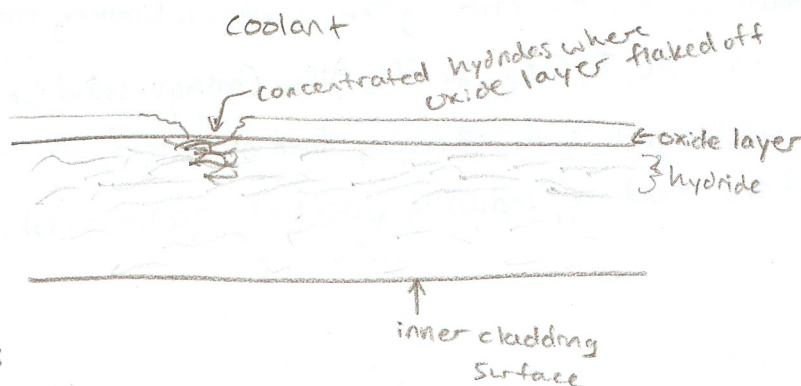 coolant
concentrated hydrides where
oxide layer flaked off
oxide layer
hydride
inner cladding
surface